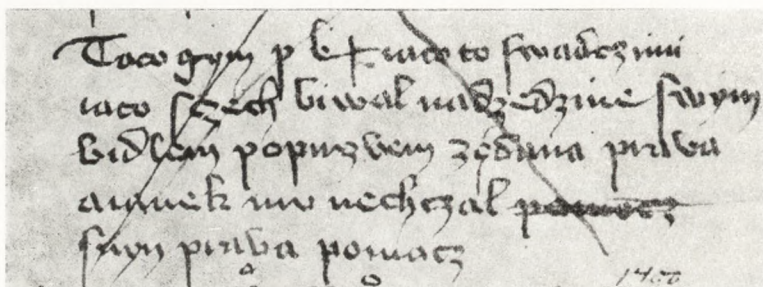 Taco gym p b ꝉ iaco to swadczimi
iaco sczech biwal nadzedzine swym
bidlem popirzwem ządana prawa
a ianek mv nechczal pomocz
suyn prawa pomocz
1400